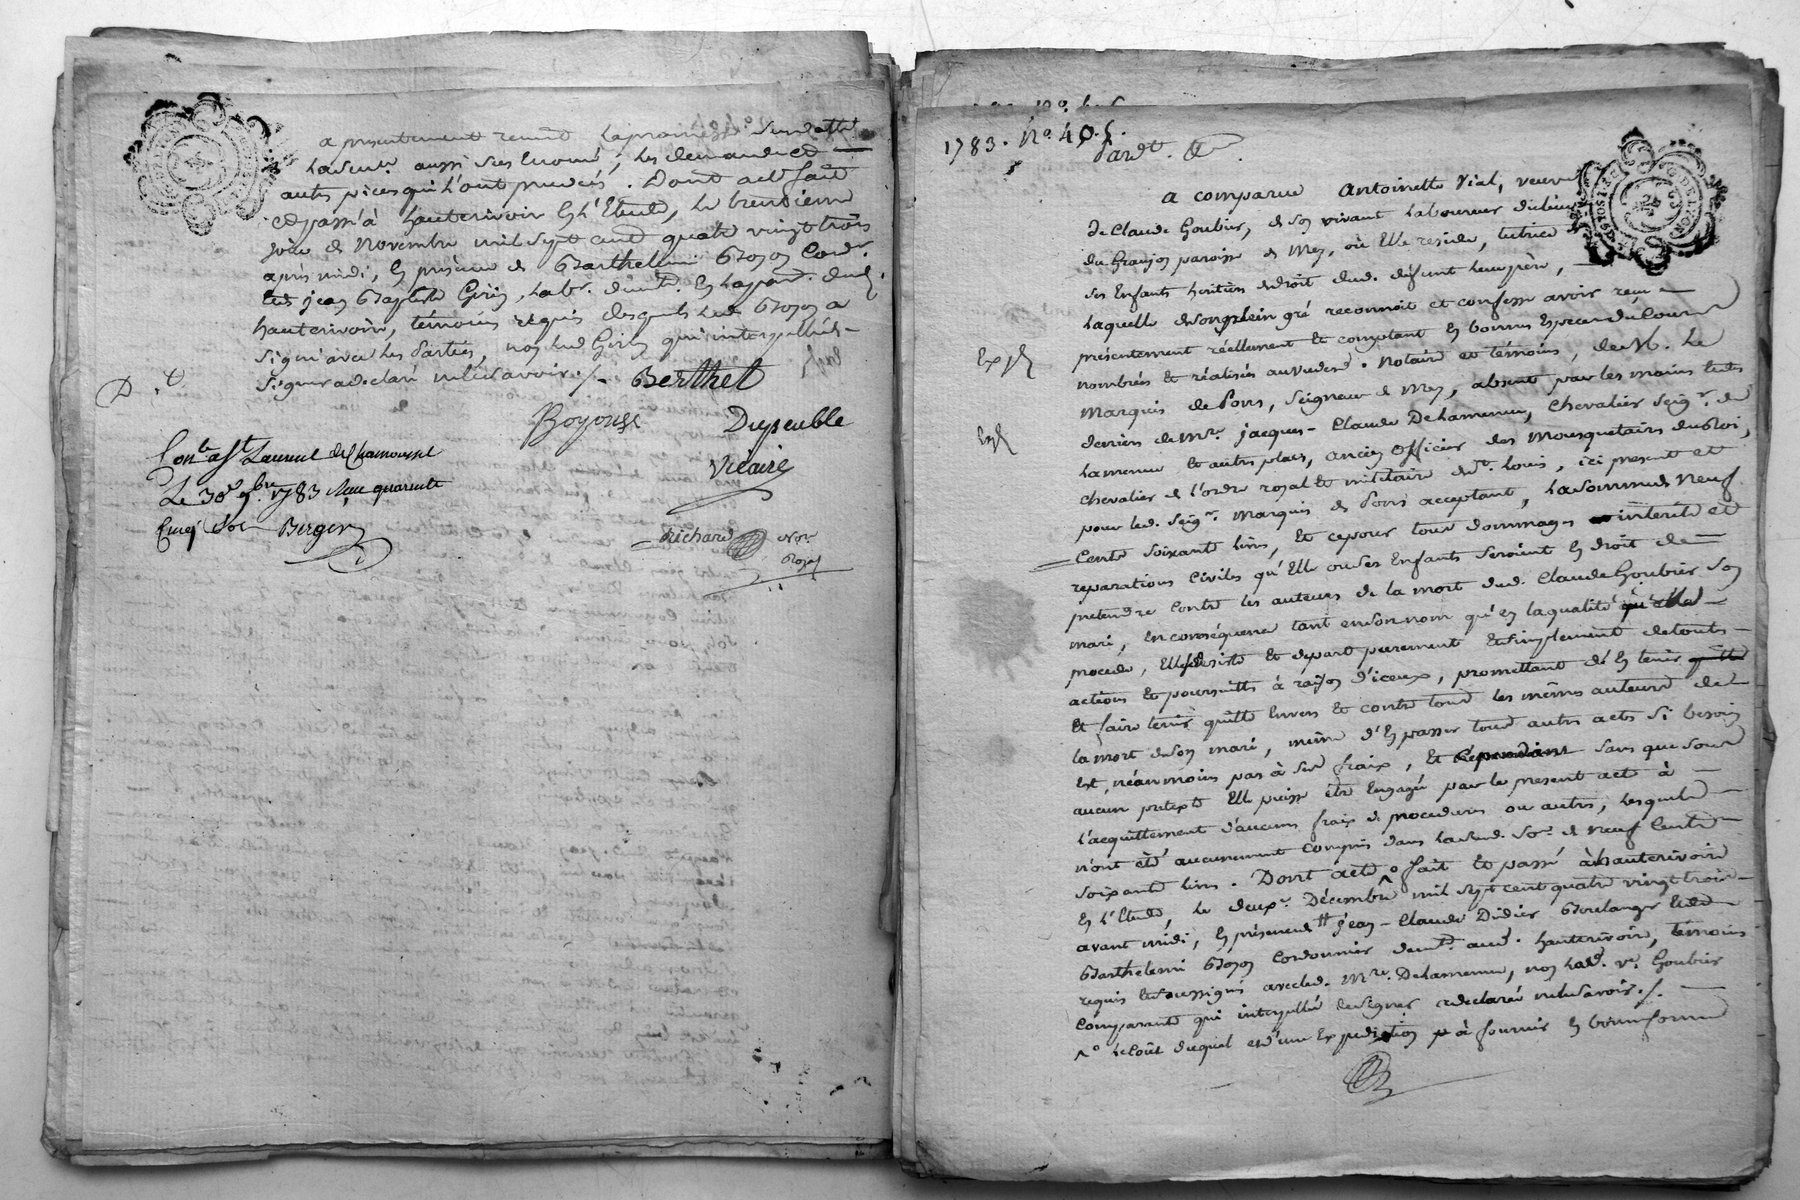 a presentement remis la promesse
autres pieces qui l'ont precedés. Dont acte fait
et passé à hauterivoire En l'Etude, le trentieme
jour de Novembre mil sept cent quatre vingt trois
après midi, En présence de Barthelemi Boyon Cord.r
et jean Baptiste Girin, lab.r dud.
hauterivoire, témoins requis desquels led. Boyon a
signé avec les Parties, non led Girin qui interpellé de
signer a declaré ne le savoir ./.
Berthet
Boyon Dupeuble
Vicaire
Con.lé a S.t Laurent de Chamousset
Le 30e 9.bre 1783 Reçu quarante
Cinq Sols Berger
Richard Not.re
Royal
1783. N.o 405.
Pard.t
A comparu Antoinette Vial, veuve
de Claude Goubier, de son vivant laboureur du lieu
du Granjon paroisse de Mey, où Elle reside, tutrice de
ses Enfants heritiers de droit dud. défunt leur père,
Laquelle de son plein gré reconnoit et confesse avoir reçu
présentement réellement et comptant En bonnes Especes du Cours
Exp.
nombrés et réalisés au vu desd. Notaire et témoins, de M. Le
Marquis de Pons, Seigneur de Mey, absent par les mains et des
deniers de M.re jacques-Claude Delamenue, Chevalier Seig.r de
Lamenue et autres places, ancien Officier des Mousquetaires du Roi,
Chevalier de l'ordre royal et militaire de S.t Louis, ici present et
pour led. Seig.r Marquis de Pons acceptant, La somme de Neuf
Cents soixante livres, Et ce pour tous dommages interets et
reparations Civiles qu'Elle ou ses Enfants seroient En droit de
pretendre Contre les auteurs de la mort dud. Claude Goubier son
mari, En conséquence tant en son nom qu'en la qualité qu'elle
procede, Elle se desiste et depart purement et simplement de toutes
actions et poursuites à raison d'iceux, promettant de En tenir
Et faire tenir quitte Envers et contre tous les mêmes auteurs de
la mort de son mari, même d'En passer tous autres actes si besoin
Est, néanmoins pas à ses fraix, Et sans que sous
aucun pretexte Elle puisse être Engagée par le present acte à
l'acquittement d'aucuns fraix de procedures ou autres, lesquels
n'ont été aucunement Compris dans lad. So.e de Neuf Cents
soixante livres. Dont acte fait Et passé à hauterivoire
En l'Etude, le deux.e Décembre mil sept cent quatre vingt trois
avant midi, En présence de jean-Claude Didier Boulanger Et de
Barthelemi Boyon Cordonnier dem.t aud. hauterivoire, témoins
requis Et soussignés avec led. M.re Delamenue, non lad. v.e Goubier
Comparante qui interpellée de signer a declaré ne le savoir ./.
le coût duquel et d'une Expedition à fournir En bonne forme